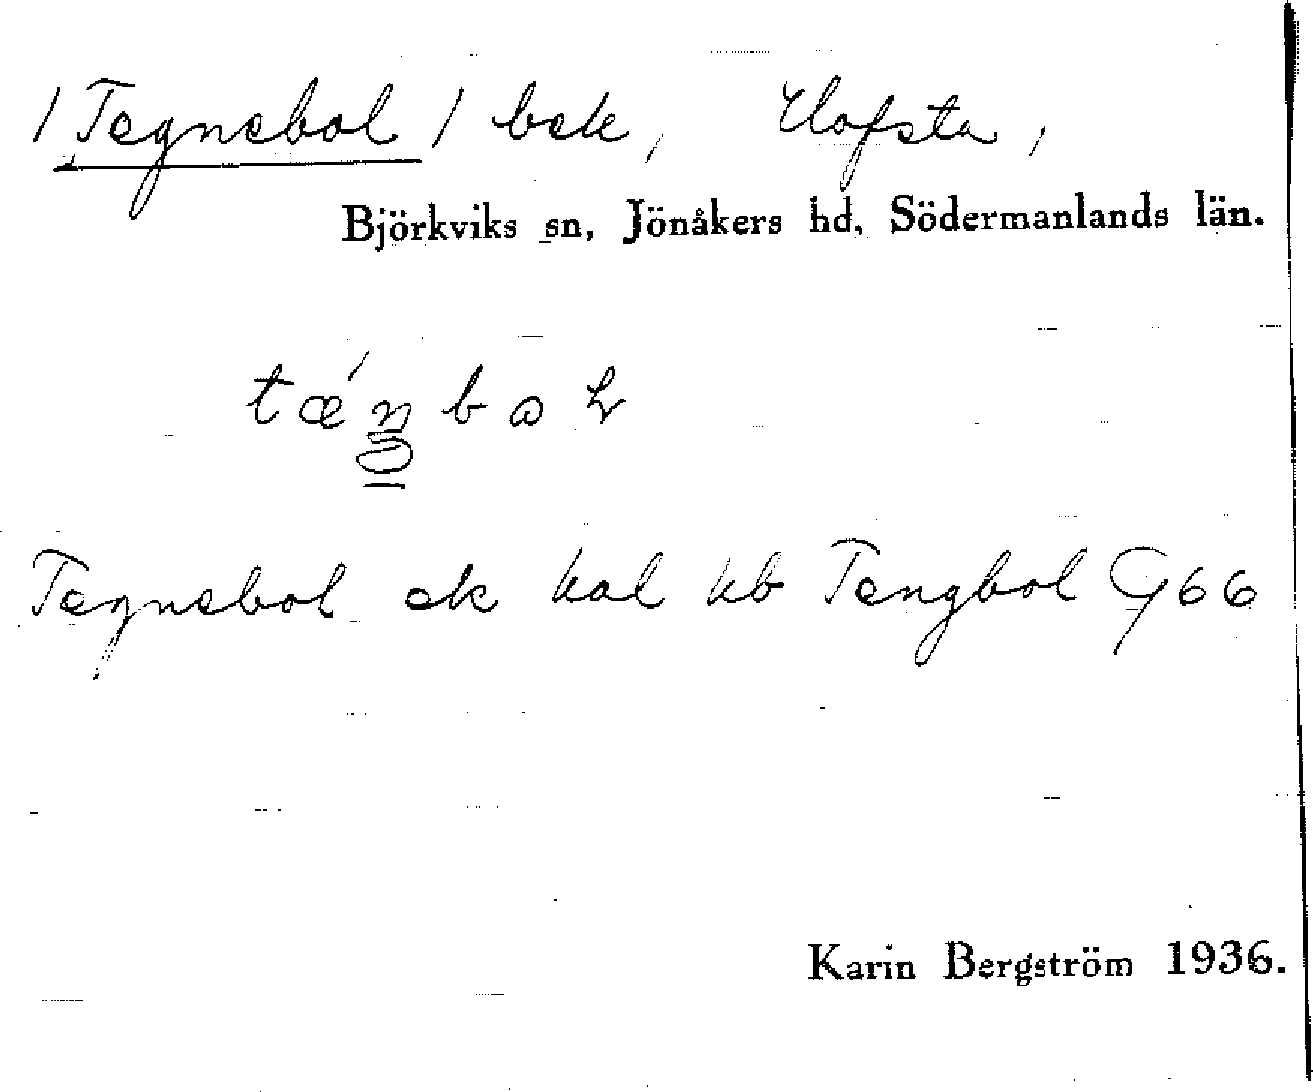 / Tegnebol / bek, Hofsta,
Björkviks sn, Jönåkers hd, Södermanlands län.
Tegnebol ek kal hb Tengbol G66
Karin Bergström 1936.